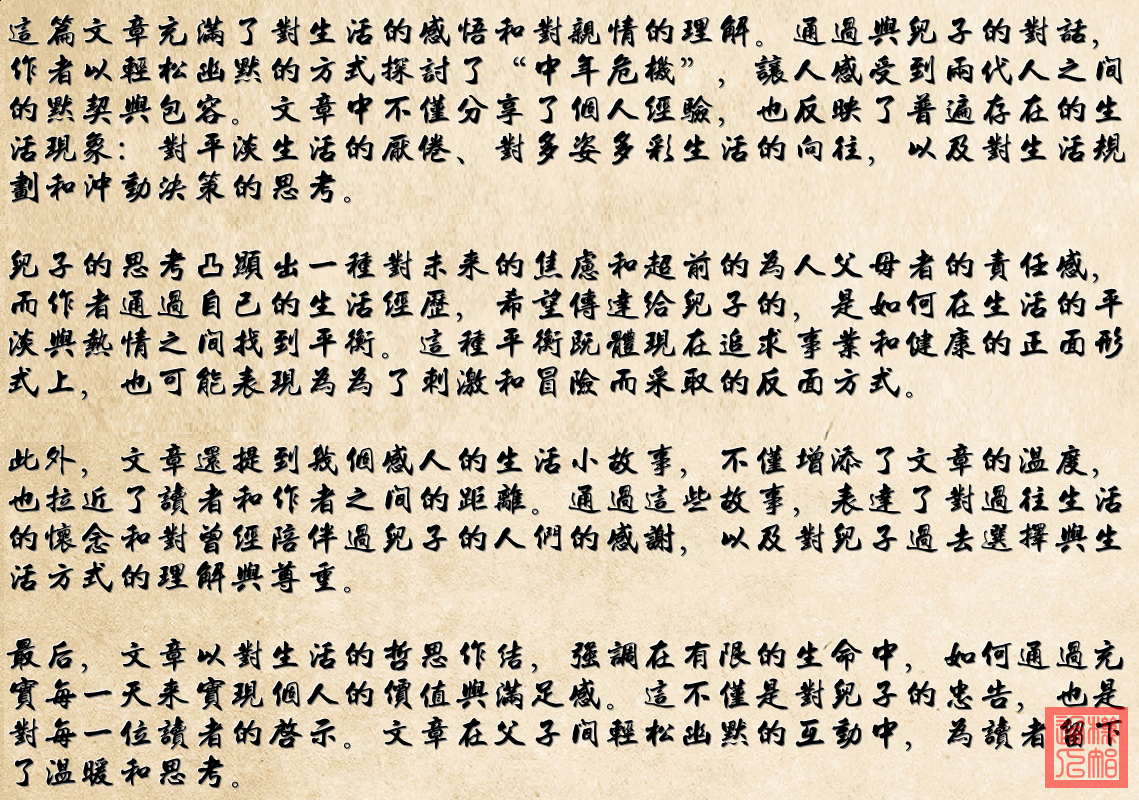 這篇文章充滿了對生活的感悟和對親情的理解。通過與兒子的對話，
作者以輕松幽默的方式探討了“中年危機”，讓人感受到兩代人之间
的默契與包容。文章中不僅分享了個人經驗，也反映了普遍存在的生
活現象：對平淡生活的厭倦、對多姿多彩生活的向往，以及對生活規
劃和沖動決策的思考。
兒子的思考凸顯出一種對未来的焦慮和超前的為人父母者的責任感，
而作者通過自己的生活經歷，希望傳達給兒子的，是如何在生活的平
淡與熱情之间找到平衡。這種平衡既體現在追求事業和健康的正面形
式上，也可能表現為為了刺激和冒險而采取的反面方式。
此外，文章還提到幾個感人的生活小故事，不僅增添了文章的溫度，
也拉近了讀者和作者之间的距離。通過這些故事，表達了對過往生活
的懷念和對曾經陪伴過兒子的人們的感謝，以及對兒子過去選擇與生
活方式的理解與尊重。
最后，文章以對生活的哲思作结，強調在有限的生命中，如何通過充
實每一天来實現個人的價值與滿足感。這不僅是對兒子的忠告，也是
對每一位讀者的啓示。文章在父子間輕松幽默的互動中，為讀者留下
了溫暖和思考。